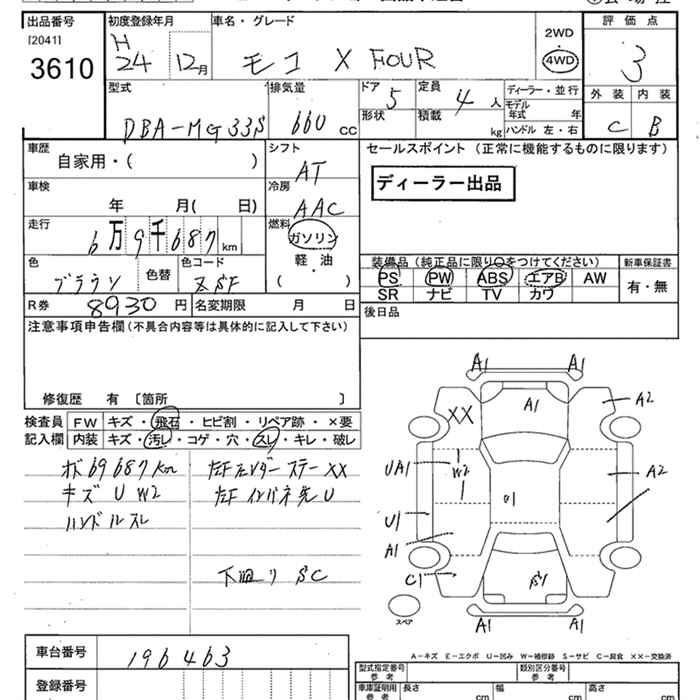 出品番号
[2041]
3610
初度登録年月
H
24 12月
車名・グレード
モコ X FOUR
2WD
4WD
評価点
3
外装 内装
C B
型式
DBA-MG33S
排気量
660 cc
ドア 5
形状
定員 4 人
積載 kg
ディーラー・並行
モデル年式 年
ハンドル 左・右
車歴
自家用・( )
シフト
AT
セールスポイント (正常に機能するものに限ります)
ディーラー出品
車検
年 月( 日)
冷房
AAC
走行
6万9千687km
燃料
ガソリン
軽・油
( )
色
ブラウン
色替
色コード
装備品(純正品に限り○をつけてください)
PS PW ABS エアB AW
SR ナビ TV カワ
新車保証書
有・無
R券 8930 円
名変期限 月 日
後日品
注意事項申告欄(不具合内容等は具体的に記入して下さい)
修復歴 有 〔箇所 〕
検査員記入欄
FW キズ・飛石・ヒビ割・リペア跡・×要
内装 キズ・汚レ・コゲ・穴・スレ・キレ・破レ
69687km
キズ U W2
ハンドルスレ
左Fフェンダーステー XX
左Fインパネ先 U
下廻り SC
A1 A1
A1
A2
XX
UA1
W2
A2
U1
U1
A1
C1
A1 A1
スペア
A-キズ E-エクボ U-凹み W-補修跡 S-サビ C-腐食 ××-交換済
車台番号
196463
登録番号
型式指定番号
参考
類別区分番号
参考
車庫証明用
参考
長さ cm
幅 cm
高さ cm